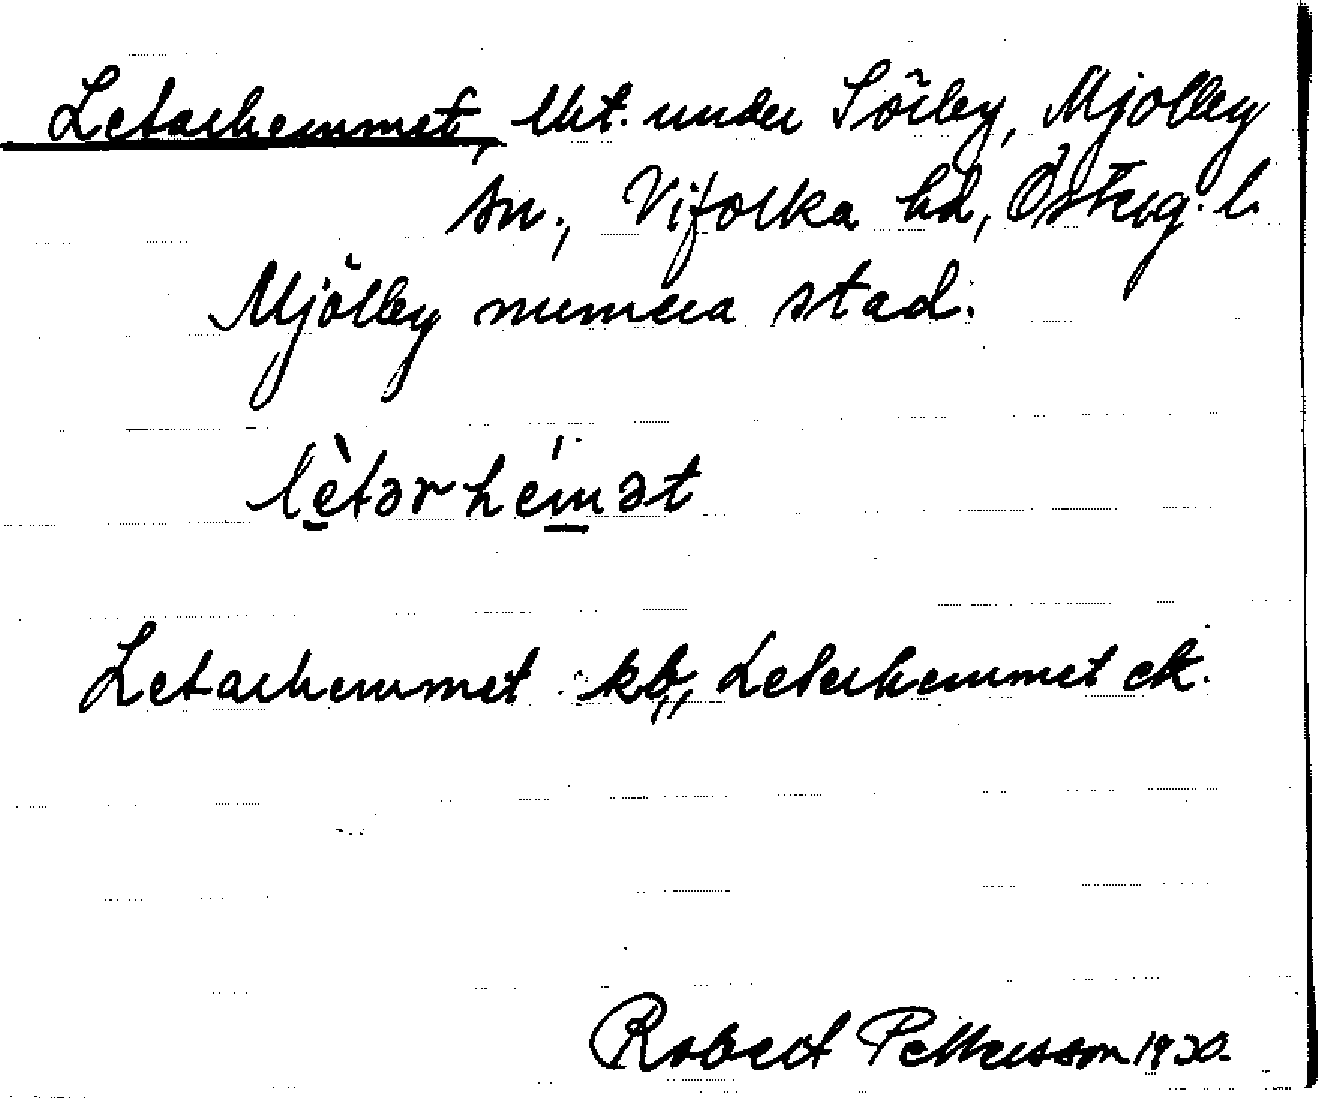 Letarhemmet, lht. under Sörby, Mjölby
sn., Vifolka hd, Österg. l.
Mjölby numera stad.
lètərhémət
Letarhemmet kb, Leterhemmet ek.
Robert Pettersson 1930.